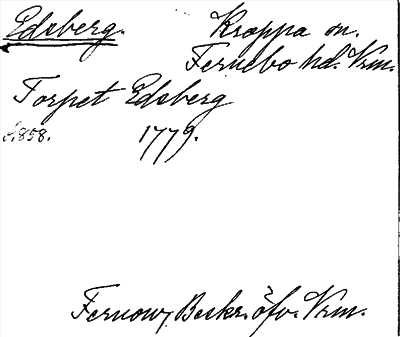 Edsberg. Kroppa sn.
Fernebo hd. Vrm.
Torpet Edsberg
s. 858. 1779.
Fernow, Beskr. öfv. Vrm.